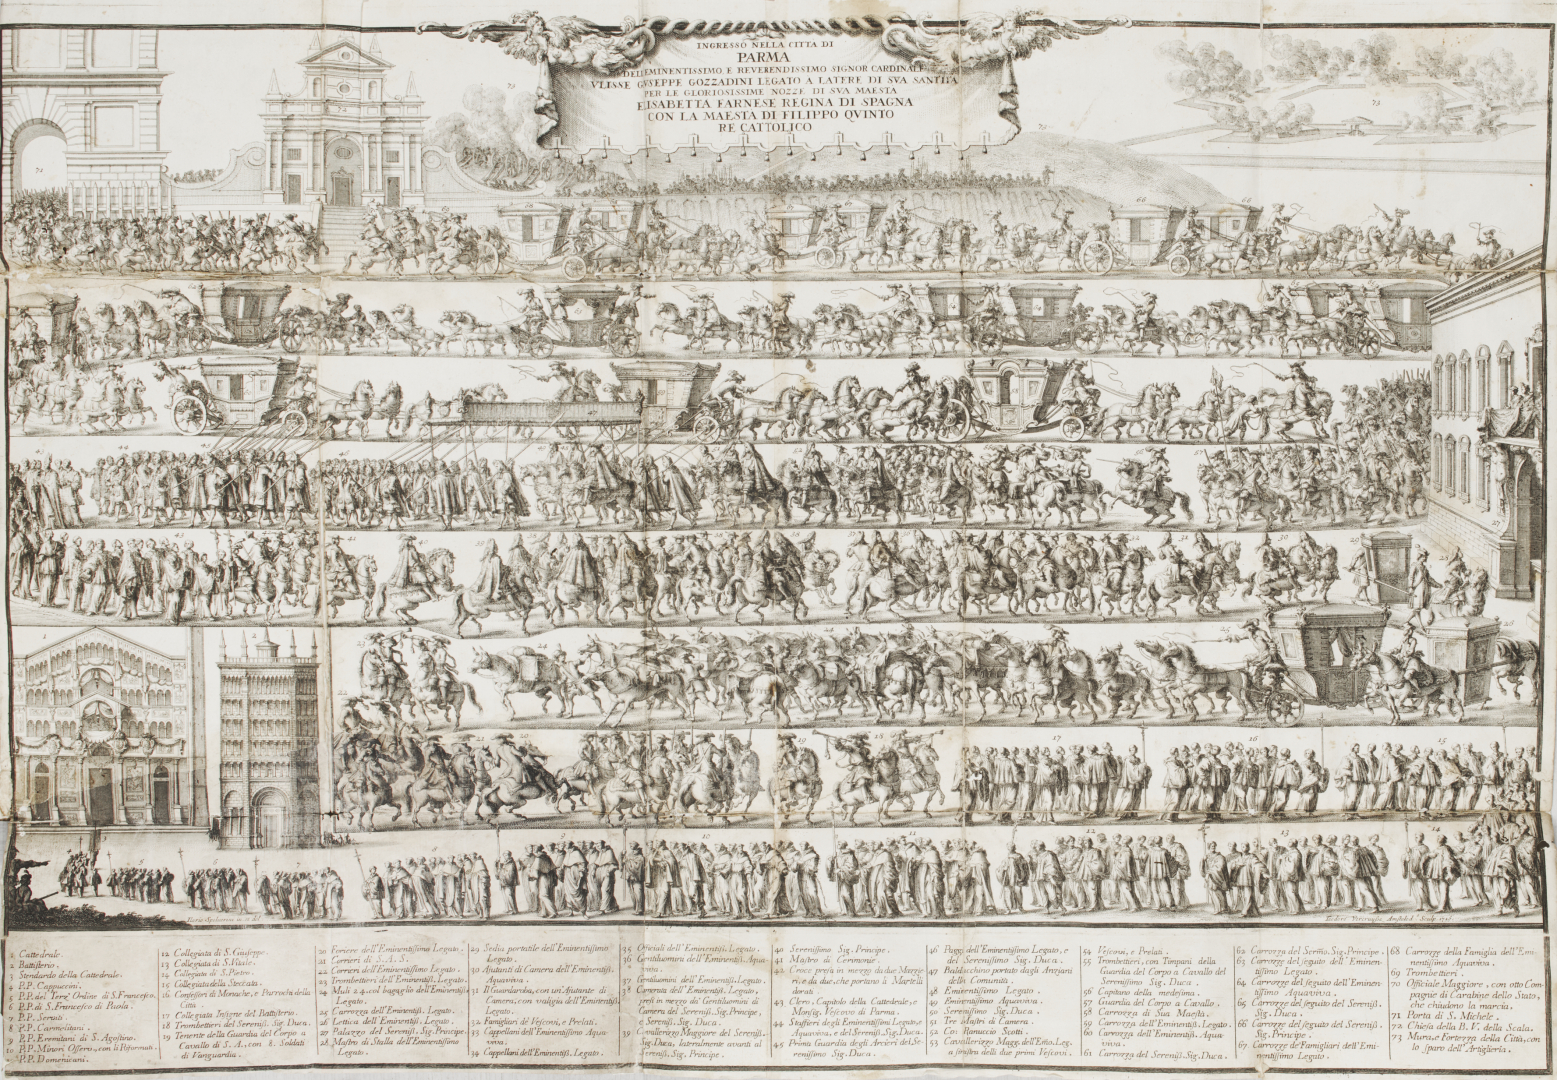 INGRESSO NELLA CITTA DI
PARMA
DELL'EMINENTISSIMO E REVERENDISSIMO SIGNOR CARDINALE
VLISSE GIVSEPPE GOZZADINI LEGATO A LATERE DI SVA SANTITA
PER LE GLORIOSISSIME NOZZE DI SVA MAESTA
ELISABETTA FARNESE REGINA DI SPAGNA
CON LA MAESTA DI FILIPPO QVINTO
RE CATTOLICO
1 Cattedrale.
2 Battisterio.
3 Stendardo della Cattedrale.
4 P.P. Cappuccini.
5 P.P. del Terz' Ordine di S. Francesco.
6 P.P. di S. Francesco di Paola.
7 P.P. Serviti
8 P.P. Carmelitani.
9 P.P. Eremitani di S. Agostino.
10 P.P. Minori Osserv., con li Riformati.
P.P. Domenicani.
12 Collegiata di S. Giuseppe.
13 Collegiata di S. Vitale.
14 Collegiata di S. Pietro.
15 Collegiata della Steccata.
16 Confessori di Monache, e Parrochi della
Città.
17 Collegiata Insigne del Battisterio.
18 Trombettieri del Sereniss. Sig. Duca.
19 Tenente della Guardia del Corpo a
Cavallo di S.A., con 8. Soldati
di Vanguardia.
20 Foriere dell'Eminentissimo Legato.
21 Corrieri di S.A.S.
22 Corrieri dell'Eminentissimo Legato.
23 Trombettieri dell'Eminentiss. Legato.
24 Muli 24. col bagaglio dell'Eminentiss.
Legato.
25 Carrozza dell'Eminentiss. Legato.
26 Lettica dell'Eminentiss. Legato.
27 Palazzo del Sereniss. Sig. Principe
28 Mastro di Stalla dell'Eminentissimo
Legato.
29 Sedia portatile dell'Eminentissimo
Legato.
30 Aiutanti di Camera dell'Eminentiss.
Aquaviva.
31 Il Guardaroba, con un'Aiutante di
Camera, con valigia dell'Eminentiss.
Legato.
32 Famigliari de' Vescovi, e Prelati.
33 Cappellani dell'Eminentiss. Aqua-
viva.
34 Cappellani dell'Eminentiss. Legato.
35 Officiali dell'Eminentiss. Legato.
36 Gentiluomini dell'Eminentiss. Aqua-
viva.
37 Gentiluomini dell'Eminentiss. Legato.
38 Camerata dell'Eminentiss. Legato,
presi in mezzo da' Gentiluomini di
Camera del Sereniss. Sig. Principe,
e Sereniss. Sig. Duca.
39 Cavallerizzo Maggiore del Sereniss.
Sig. Duca, lateralmente avanti al
Sereniss. Sig. Principe.
40 Serenissimo Sig. Principe.
41 Mastro di Cerimonie.
42 Croce presa in mezzo da due Mazzie-
ri, e da due, che portano i Martelli
dorati
43 Clero, Capitolo della Cattedrale, e
Monsig. Vescovo di Parma.
44 Staffieri degli Eminentissimi Legato, e
Aquaviva, e del Sereniss. Sig. Duca.
45 Prima Guardia degli Arcieri del Se-
renissimo Sig. Duca.
46 Paggi dell'Eminentissimo Legato, e
del Serenissimo Sig. Duca.
47 Baldacchino portato dagli Anziani
della Comunità.
48 Eminentissimo Legato
49 Eminentissimo Aquaviva.
50 Serenissimo Sig. Duca.
51 Tre Mastri di Camera.
52 Co: Ranuccio Scotti.
53 Cavallerizzo Magg. dell'Emo. Leg.
a sinistra delli due primi Vescovi.
54 Vescovi, e Prelati.
55 Trombettieri, con Timpani della
Guardia del Corpo a Cavallo del
Serenissimo Sig. Duca.
56 Capitano della medesima.
57 Guardia del Corpo a Cavallo.
58 Carrozza di Sua Maestà.
59 Carrozza dell'Eminentiss. Legato.
60 Carrozza dell'Eminentiss. Aqua-
viva.
61 Carrozza del Sereniss. Sig. Duca.
62 Carrozza del Sermo. Sig. Principe.
63 Carrozza del seguito dell'Eminen-
tissimo Legato.
64 Carrozza del seguito dell'Eminen-
tissimo Aquaviva.
65 Carrozze del seguito del Sereniss.
Sig. Duca.
66 Carrozze del seguito del Sereniss.
Sig. Principe.
67 Carrozze de' Famigliari dell'Emi-
nentissimo Legato.
68 Carrozza della Famiglia dell'Emi-
nentissimo Aquaviva.
69 Trombettieri.
70 Officiale Maggiore, con otto Com-
pagnie di Carabine dello Stato,
che chiudono la marcia.
71 Porta di S. Michele.
72 Chiesa della B.V. della Scala.
73 Mura, e Fortezza della Città, con
lo sparo dell'Artiglieria.